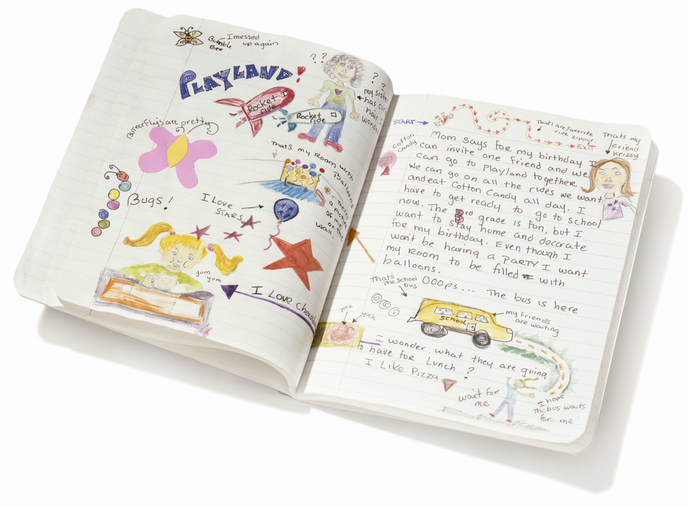 Bumble
Bee
I messed
up again
PLAYLAND!
? ?
? ?
my sister
has curly
hair I
wonder
Rocket
ride
Rocket
ride
Butterfly's are pretty
Thats my Room with
balloons
Bugs!
I LOVE
STARS
on my
wall
yum
yum
I LOVE
START
Thats are favorite
ride
EXIT
Thats my
friend
Krissy
Cotton
Candy
Mom Says for my birthday I
can invite one friend and we
can go to playland together,
we can go on all the rides we want
and eat Cotton Candy all day. I
have to get ready to go to school
now. The 3rd grade is fun, but I
want to stay home and decorate
for my birthday. Even though I
won't be having a PARTY I want
my room to be filled with
balloons.
OOOps... The bus is here
Thats the School
bus
School
my friends
are waiting
yuk
I wonder what they are going
to have for Lunch ?
I Like Pizza
wait for
me
I hope
the bus waits
for me